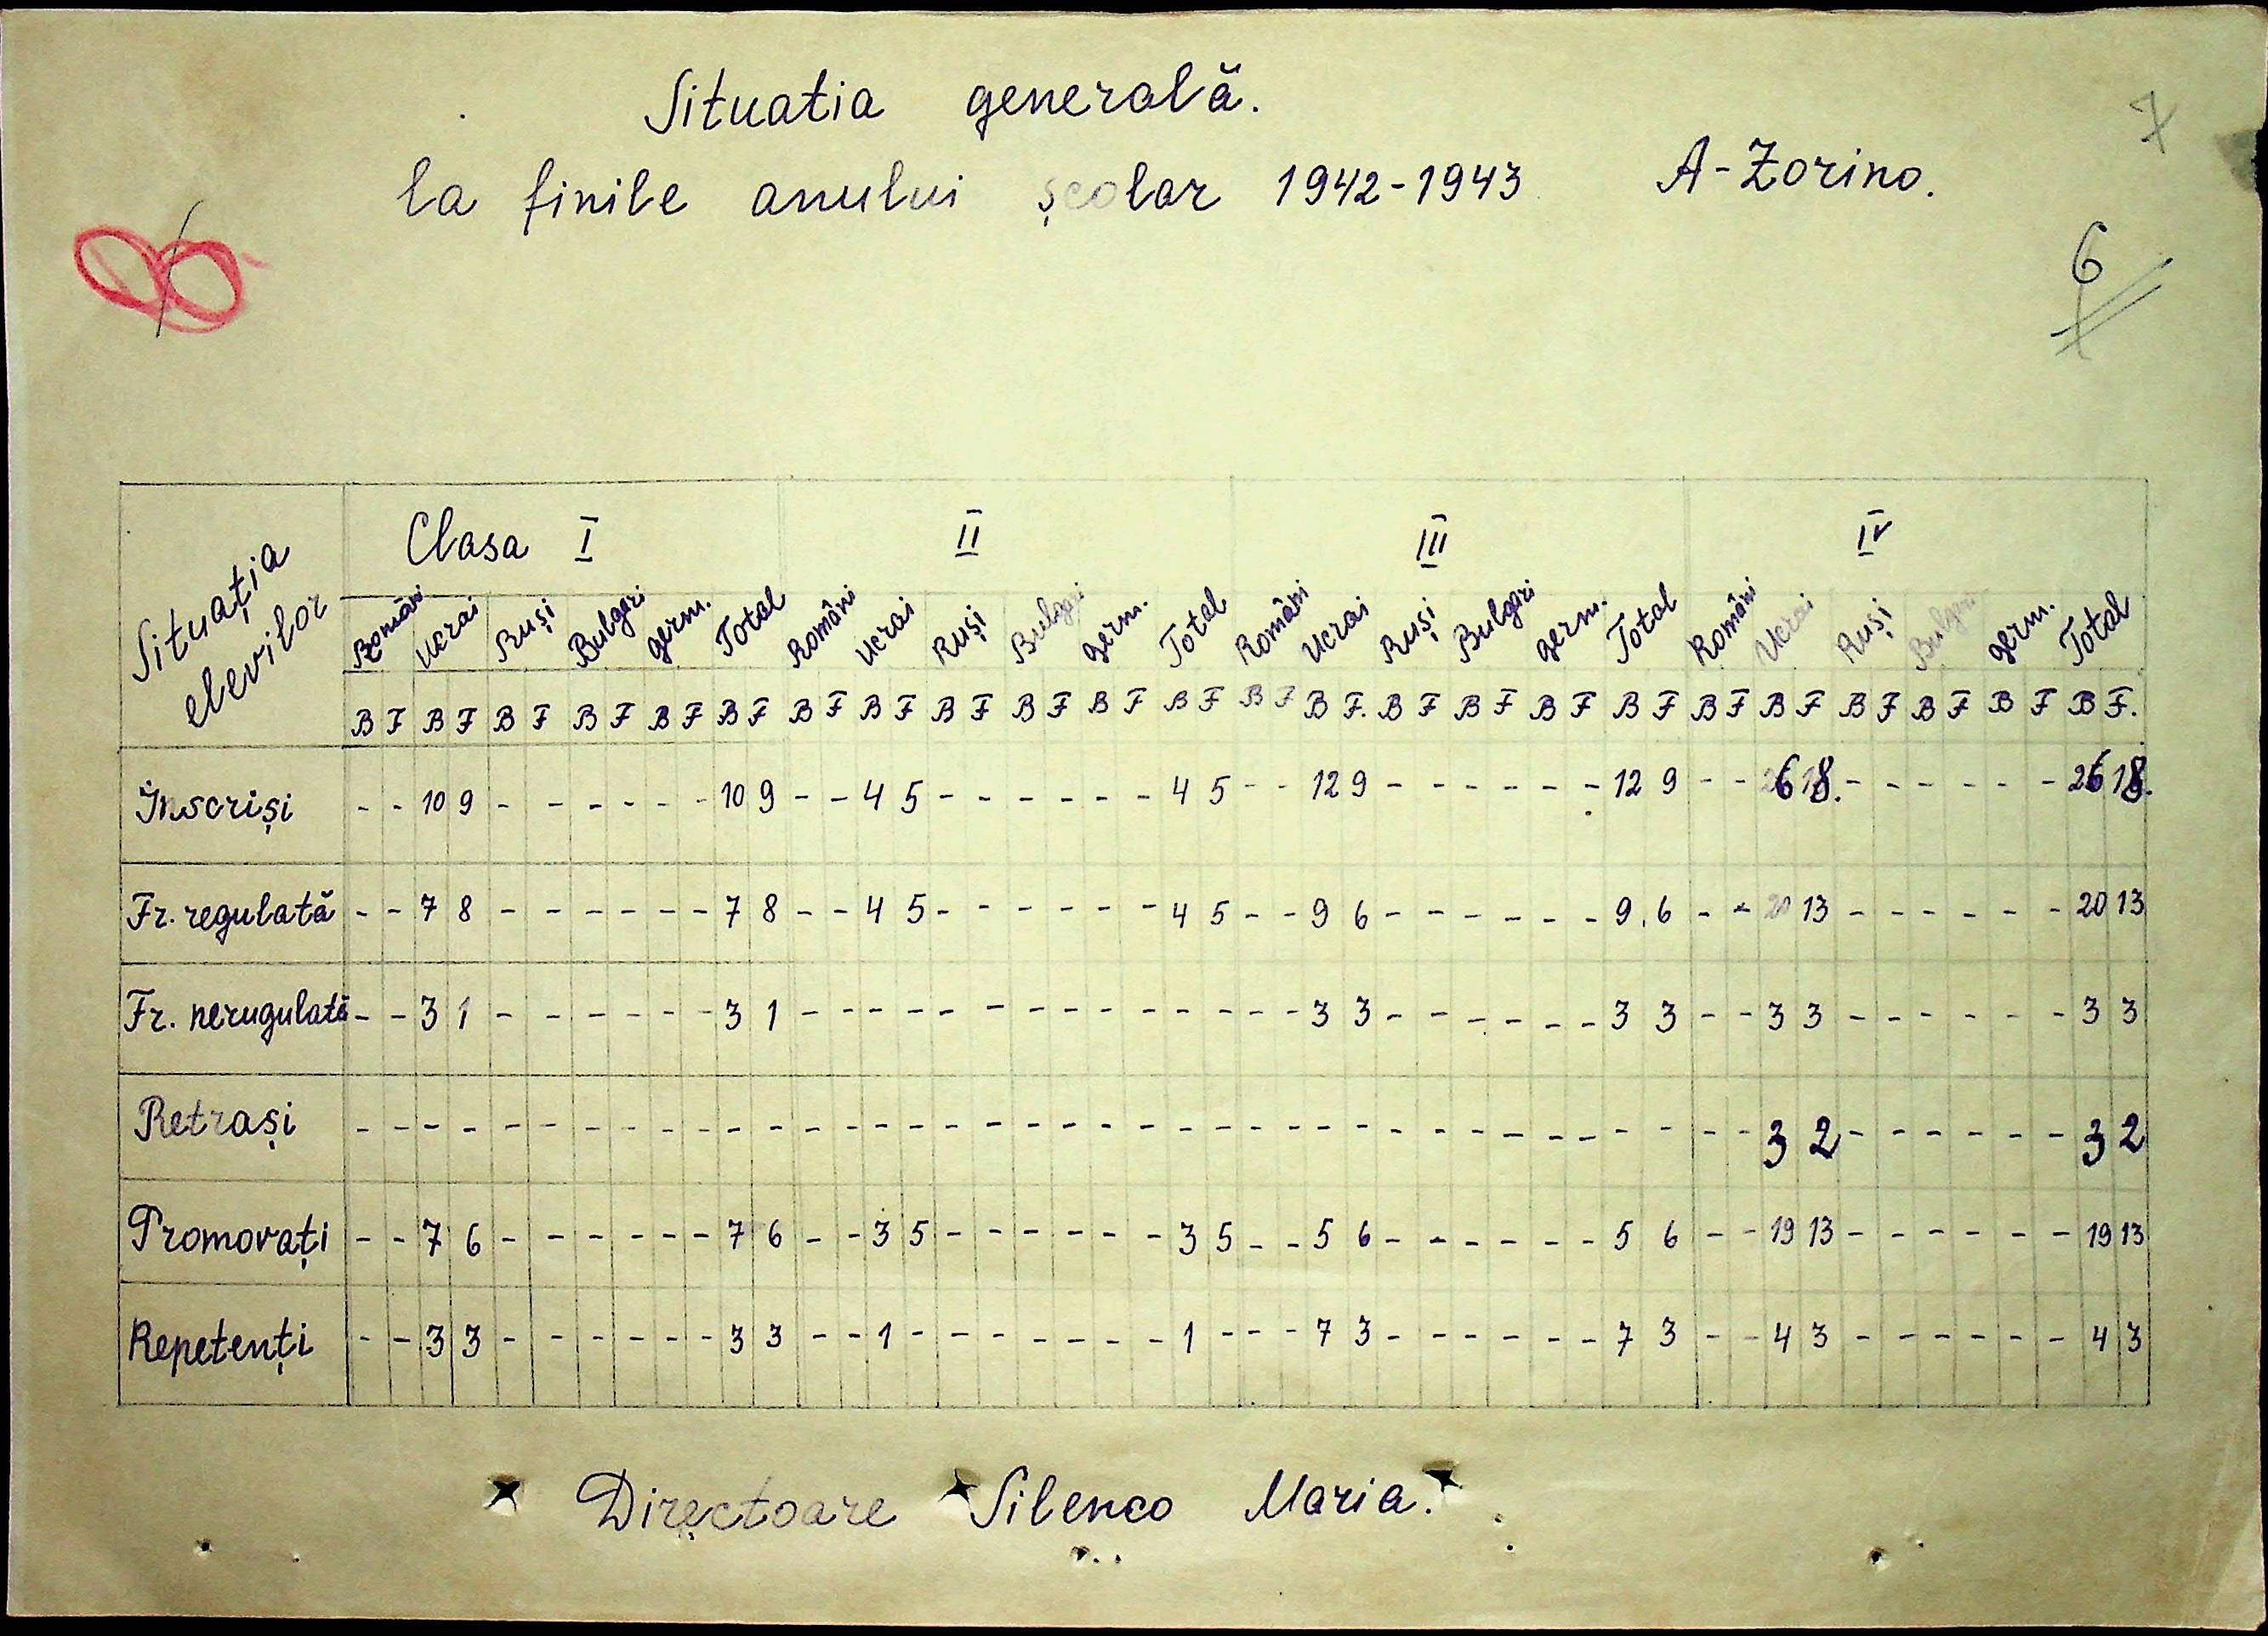 Situatia generală.
la finile anului școlar 1942-1943 A-Zorino.
7
6
Situația elevilor
Clasa I II III IV
Români Ucrai Ruși Bulgari germ. Total Români Ucrai Ruși Bulgari germ. Total Români Ucrai Ruși Bulgari germ. Total Români Ucrai Ruși Bulgari germ. Total
B F B F B F B F B F B F B F B F B F B F B F B F B F B F. B F B F B F B F B F B F B F B F B F B F.
Înscriși - - 10 9 - - - - - - 10 9 - - 4 5 - - - - - - 4 5 - - 12 9 - - - - - - 12 9 - - 26 18. - - - - - - 26 18.
Fr. regulată - - 7 8 - - - - - - 7 8 - - 4 5 - - - - - - 4 5 - - 9 6 - - - - - - 9.6 - - 20 13 - - - - - - 20 13
Fr. nerugulată - - 3 1 - - - - - - 3 1 - - - - - - - - - - - - - - 3 3 - - - - - - 3 3 - - 3 3 - - - - - - 3 3
Retrași - - - - - - - - - - - - - - - - - - - - - - - - - - - - - - - - - - - - - - 3 2 - - - - - - 3 2
Promovați - - 7 6 - - - - - - 7 6 - - 3 5 - - - - - - 3 5 - - 5 6 - - - - - - 5 6 - - 19 13 - - - - - - 19 13
Repetenți - - 3 3 - - - - - - 3 3 - - 1 - - - - - - - 1 - - - 7 3 - - - - - - 7 3 - - 4 3 - - - - - - 4 3
Directoare Silenco Maria.